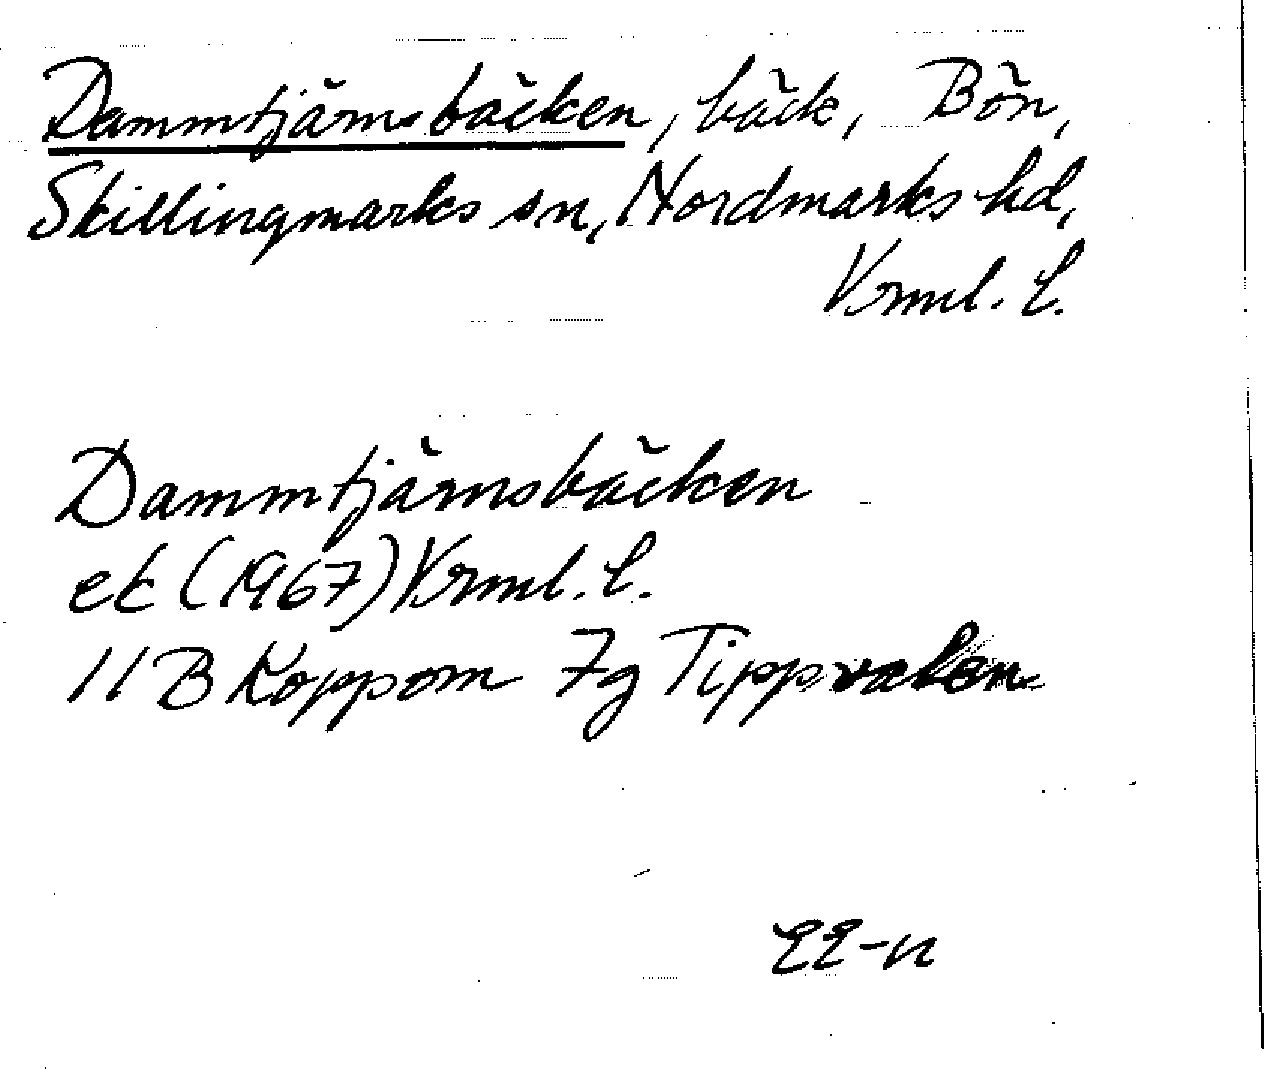 Dammtjärnsbäcken, bäck, Bön,
Skillingmarks sn, Nordmarks hd,
Vrml. l.
Dammtjärnsbäcken
ek (1967) Vrml. l.
11B Koppom 7g Tippvalen